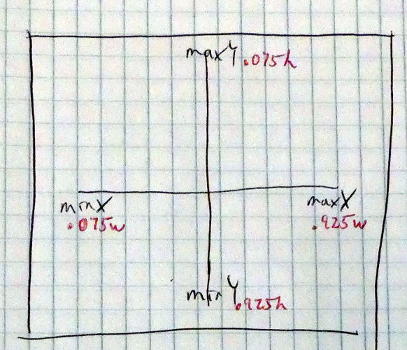 maxY .075h
minX
.075w
maxX
.925w
minY .925h